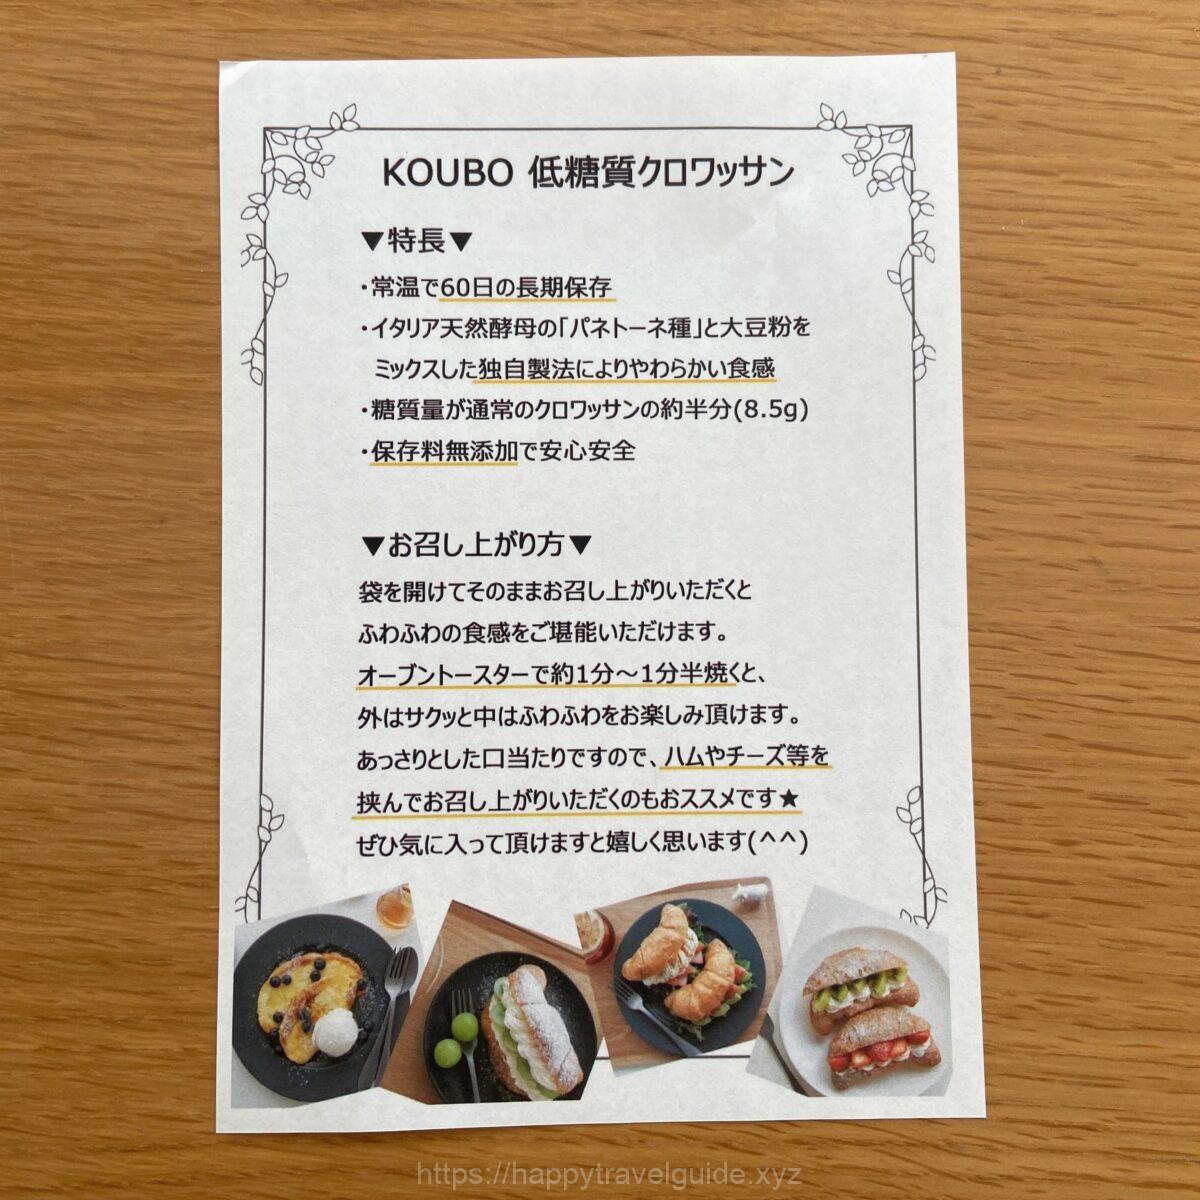 KOUBO 低糖質クロワッサン
▼特長▼
・常温で60日の長期保存
・イタリア天然酵母の「パネトーネ種」と大豆粉を
ミックスした独自製法によりやわらかい食感
・糖質量が通常のクロワッサンの約半分(8.5g)
・保存料無添加で安心安全
▼お召し上がり方▼
袋を開けてそのままお召し上がりいただくと
ふわふわの食感をご堪能いただけます。
オーブントースターで約1分～1分半焼くと、
外はサクッと中はふわふわをお楽しみ頂けます。
あっさりとした口当たりですので、ハムやチーズ等を
挟んでお召し上がりいただくのもおススメです★
ぜひ気に入って頂けますと嬉しく思います(^^)
https://happytravelguide.xyz